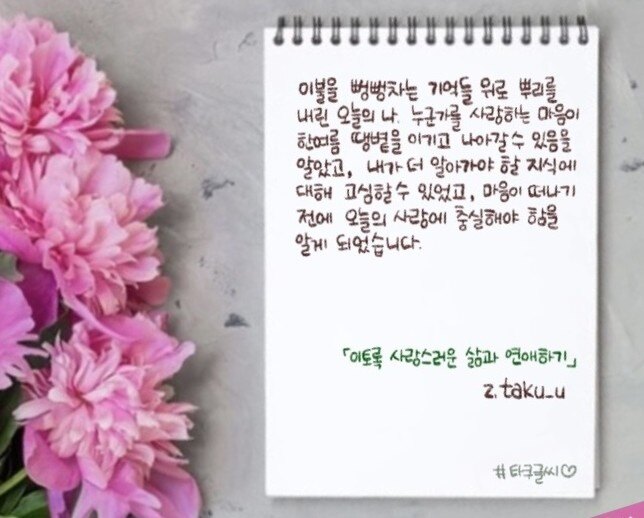 이불을 뻥뻥차는 기억들 위로 뿌리를
내린 오늘의 나. 누군가를 사랑하는 마음이
한여름 땡볕을 이기고 나아갈 수 있음을
알았고, 내가 더 알아가야 할 지식에
대해 고심할 수 있었고, 마음이 떠나기
전에 오늘의 사랑에 충실해야 함을
알게 되었습니다.
「이토록 사랑스러운 삶과 연애하기」
z.taku_u
#타쿠글씨♡